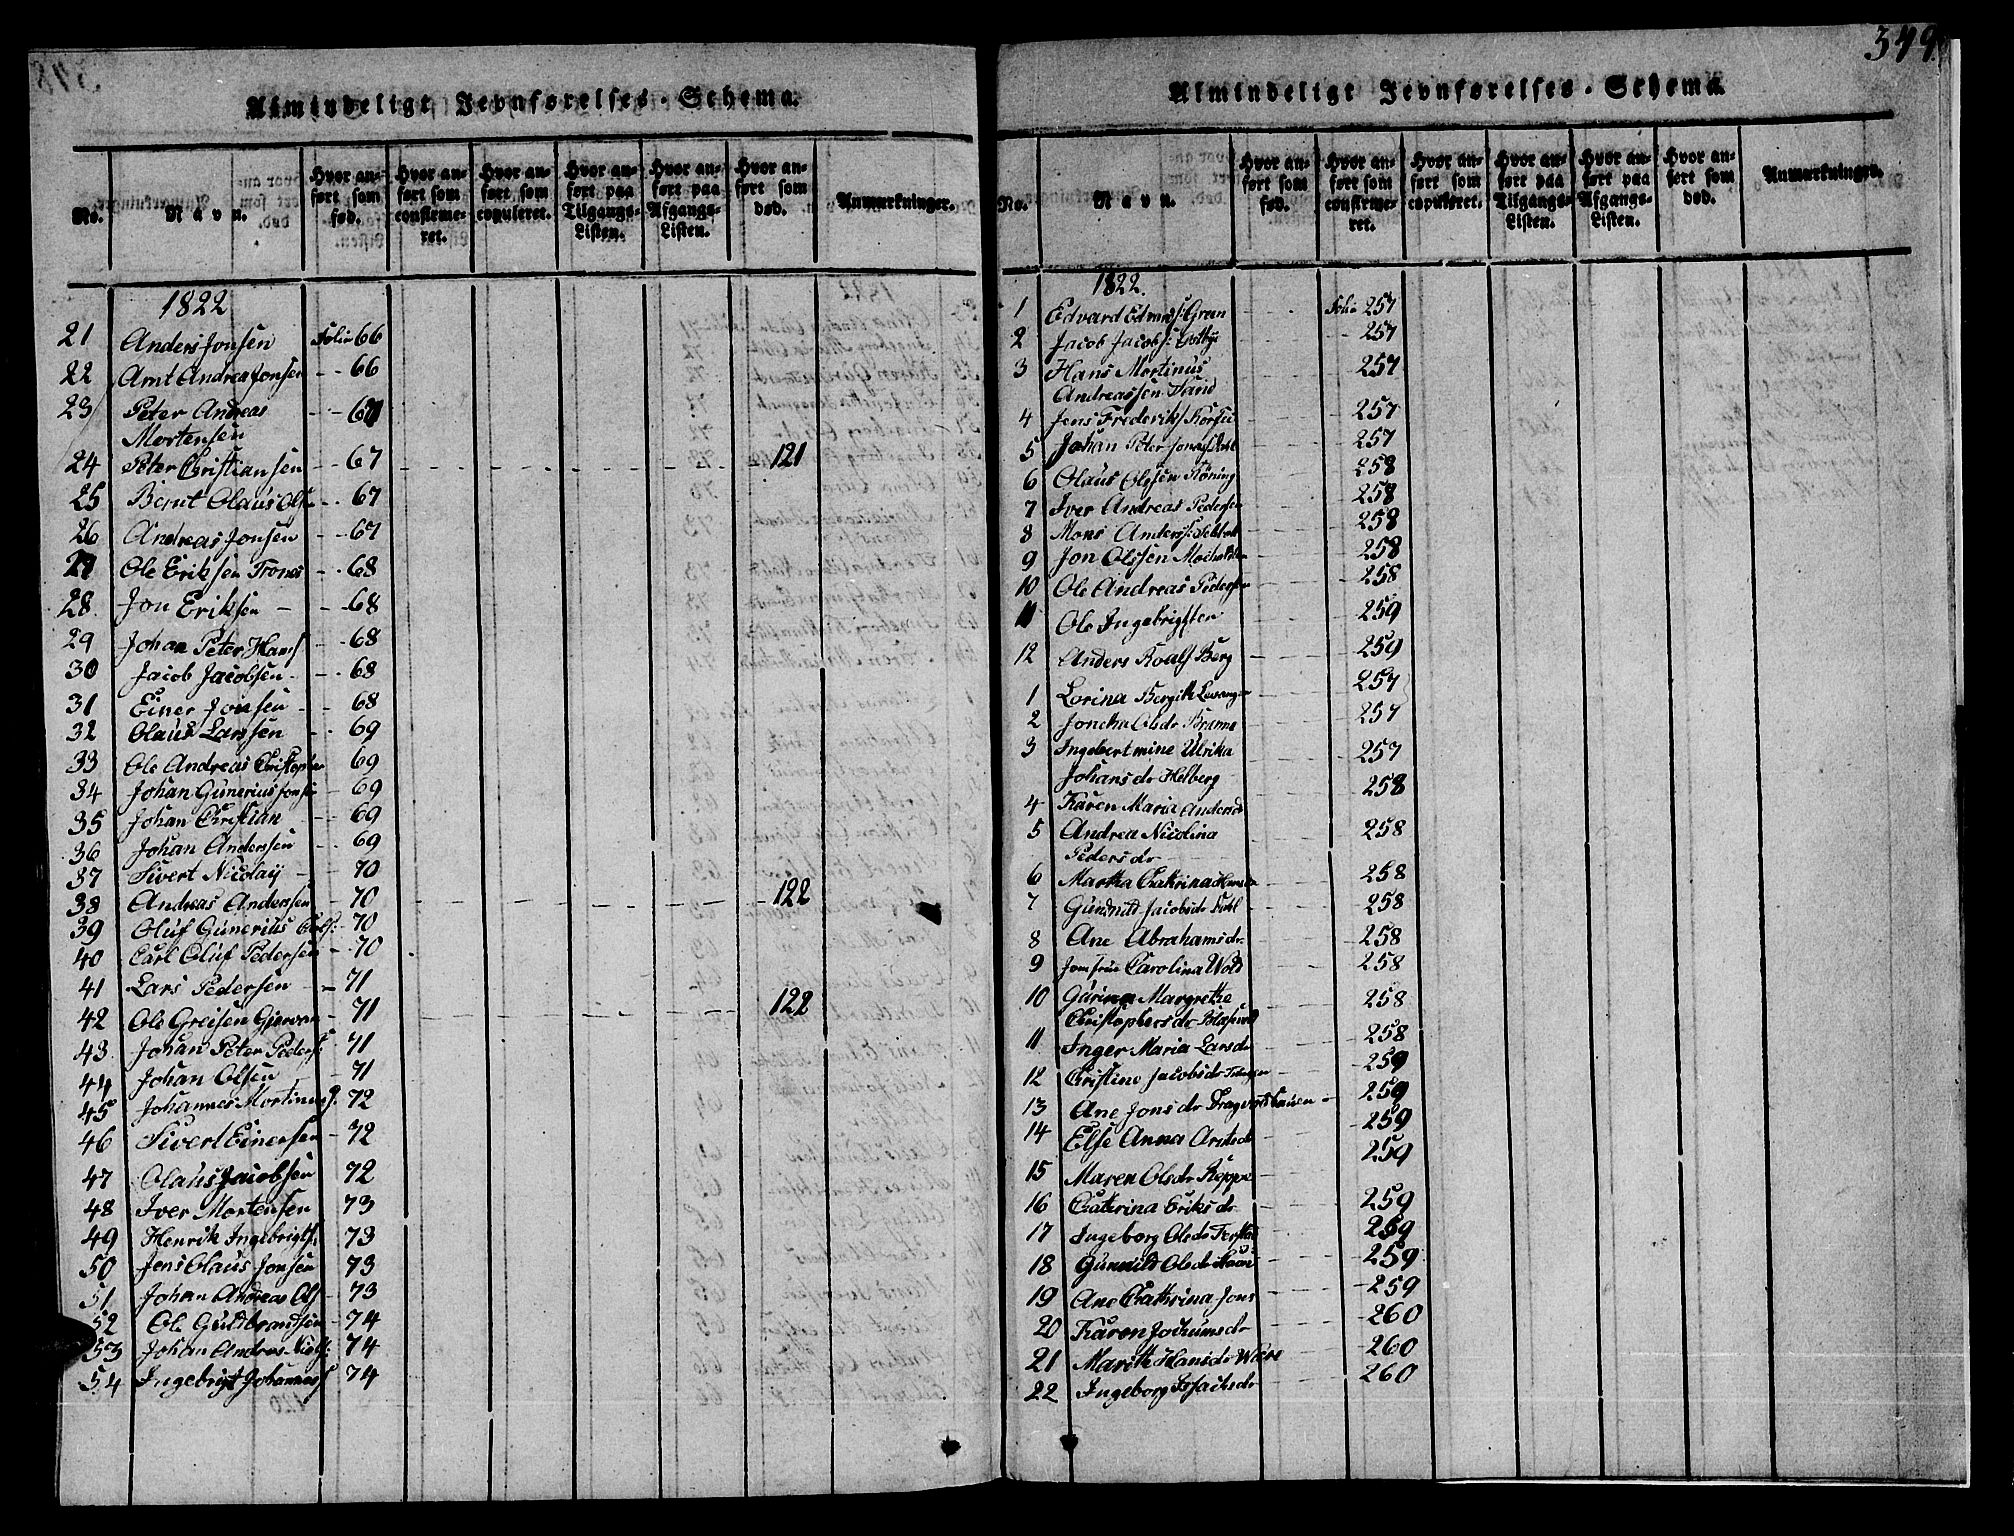 Almindeligt Jevnførelses-Schema.
No.
Navn.
Hvor anført som fød.
Hvor anført som confirmeret.
Hvor anført som copuleret.
Hvor anført paa Tilgangs-Listen.
Hvor anført paa Afgangs-Listen.
Hvor anført som død.
Anmærkninger.
1822
21 Anders Jonsen Folio 66
22 Arnt Andrea Jonsen 66
23 Peter Andreas
Mortensen 67
24 Peter Christiansen 67 121
25 Bernt Olaus Ols 67
26 Andreas Jonsen 67
27 Ole Eriksen Trones 68
28 Jon Eriksen 68
29 Johan Peter Hans 68
30 Jacob Jacobsen 68
31 Einer Jonsen 68
32 Olaus Larssen 69
33 Ole Andreas Christophe 69
34 Johan Gunerius Jonse 69
35 Johan Christian 69
36 Johan Anderssen 69
37 Sivert Nicolaij 70
38 Andreas Anderssen 70 122
39 Oluf Gunerius 70
40 Carl Oluf Pedersen 70
41 Lars Pedersen 71
42 Ole Greisen Gjervan 71 122
43 Johan Peter Peders 71
44 Johan Olsen 71
45 Johannes Mortinus 72
46 Sivert Einersen 72
47 Olaus Jacobsen 72
48 Iver Mortensen 73
49 Henrik Ingebrigts: 73
50 Jens Olaus Jonsen 73
51 Johan Andreas Ols 73
52 Ole Guldbrandsen 74
53 Johan Andreas 74
54 Ingebrigt Johannes 74
349.
Almindeligt Jevnførelses-Schema.
No.
Navn.
Hvor anført som fød.
Hvor anført som confirmeret.
Hvor anført som copuleret.
Hvor anført paa Tilgangs-Listen.
Hvor anført paa Afgangs-Listen.
Hvor anført som død.
Anmærkninger.
1822.
1 Edvard Edvards: Green Folio 257
2 Jacob Jacobs: 257
3 Hans Mortinus 257
Andreassen Sand
4 Jens Frederiks 257
5 Johan Peter 257
6 Olaus Olssen Röning 258
7 Iver Andreas Pedersen 258
8 Mons Anderss: 258
9 Jon Olssen 258
10 Ole Andreas Pedersen 258
11 Ole Ingebrigtsen 259
12 Anders Roalf Berg 259
1 Lorina Bergitte Levanger 257
2 Joneka Olsdr 257
3 Ingebertmine Ulrika 257
Johansdr Helberg
4 Karen Maria Andersd 258
5 Andrea Nicolina 258
Pedersdr
6 Martha Cathrina Hansd 258
7 Gunnild Jacobsdr 258
8 Ane Abrahamsdr 258
9 Jomfrue Carolina Wold 258
10 Gurina Margrethe 258
Christophersdr
11 Inger Maria Larsdr 258
12 Christine Jacobsdr 259
13 Ane Jonsdr 259
14 Else Anna Arntsdr 259
15 Maren Olsdr Reppe 259
16 Catrina Eriksdr 259
17 Ingeborg Olsdr 259
18 Gunnild Olsdr 259
19 Ane Cathrina Jons 259
20 Karen Jochumsdr 260
21 Marith Hansdr Wære 260
22 Ingeborg Issachsdr 260